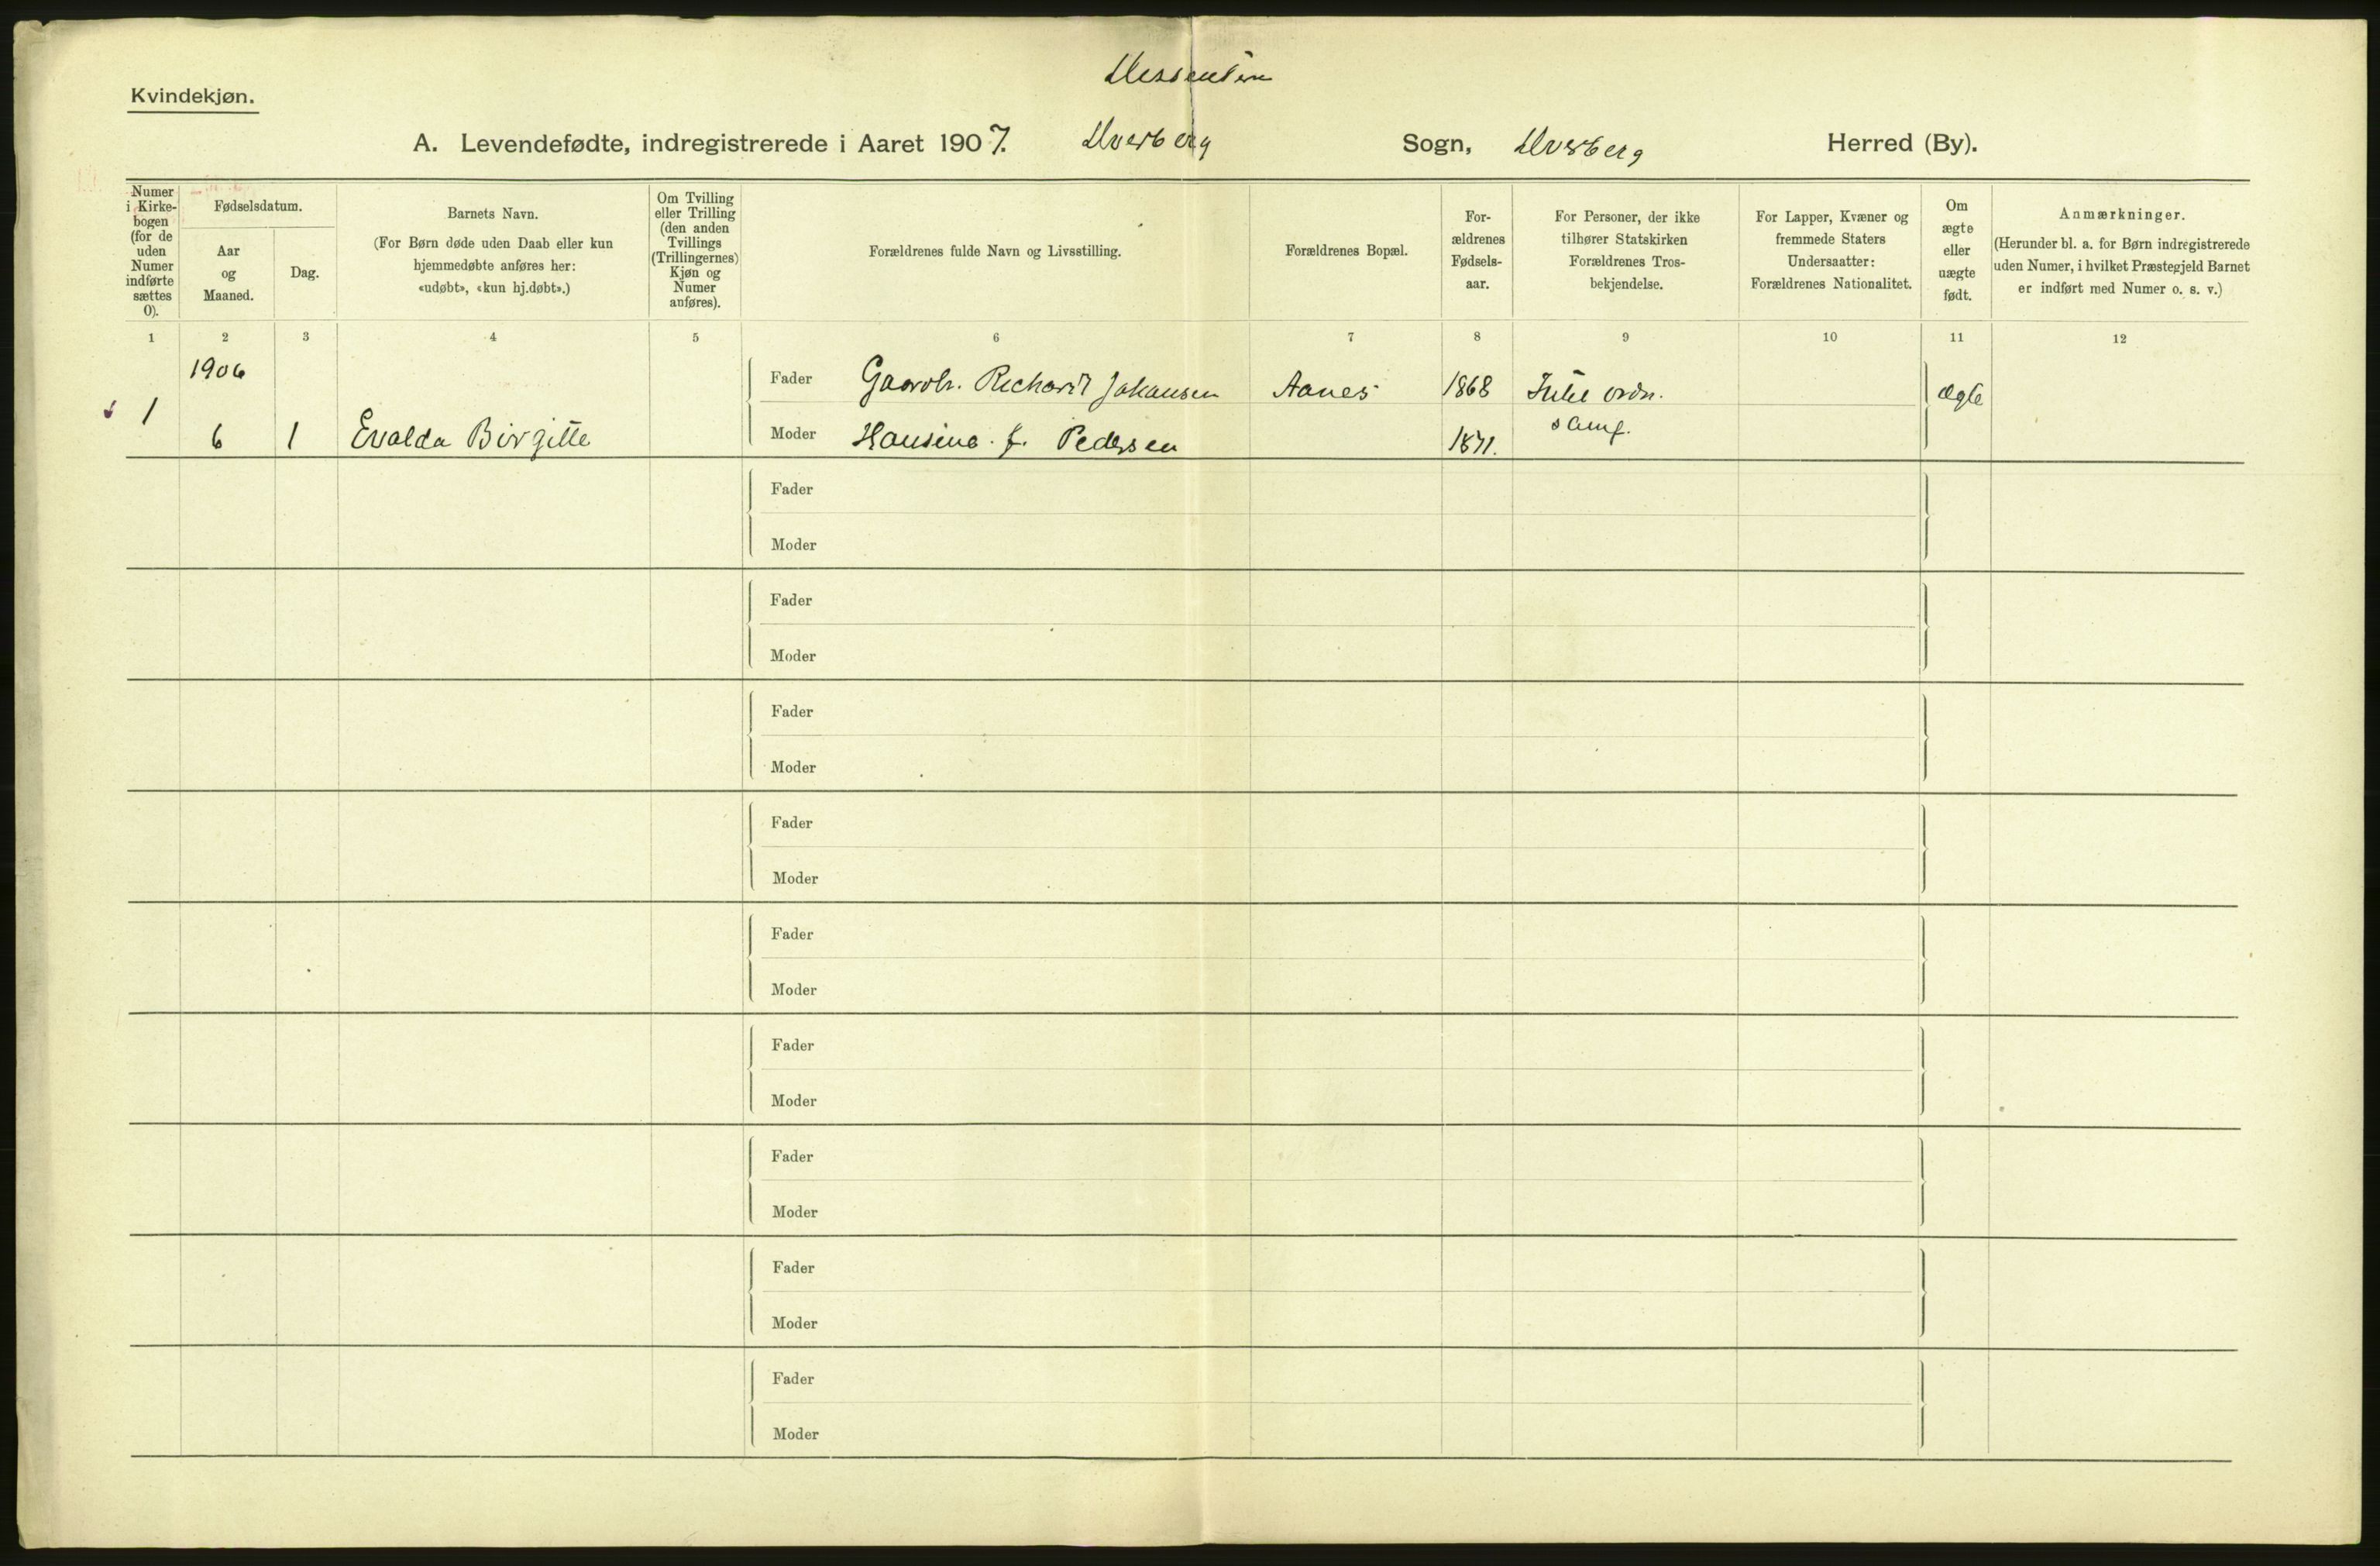 Dissentere
Kvindekjøn.
A. Levendefødte, indregistrerede i Aaret 1907. Dverberg Sogn, Dverberg Herred (By).
Numer
i Kirke-
bogen
(for de
uden
Numer
indførte
sættes
0).
Fødselsdatum.
Aar
og
Maaned.
Dag.
Barnets Navn.
(For Børn døde uden Daab eller kun
hjemmedøbte anføres her:
«udøbt», «kun hj.døbt».)
Om Tvilling
eller Trilling
(den anden
Tvillings
(Trillingernes)
Kjøn og
Numer
anføres).
Forældrenes fulde Navn og Livsstilling.
Forældrenes Bopæl.
For-
ældrenes
Fødsels-
aar.
For Personer, der ikke
tilhører Statskirken
Forældrenes Tros-
bekjendelse.
For Lapper, Kvæner og
fremmede Staters
Undersaatter:
Forældrenes Nationalitet.
Om
ægte
eller
uægte
født.
Anmærkninger.
(Herunder bl. a. for Børn indregistrerede
uden Numer, i hvilket Præstegjeld Barnet
er indført med Numer o. s. v.)
1 2 3 4 5 6 7 8 9 10 11 12
1906
Fader Gaardbr. Richard Johansen Aanes 1868 ordn. Ægte
1
6 1 Evalda Birgitte Moder Hansine f. Pedersen 1871. samf.
Fader
Moder
Fader
Moder
Fader
Moder
Fader
Moder
Fader
Moder
Fader
Moder
Fader
Moder
Fader
Moder
Fader
Moder